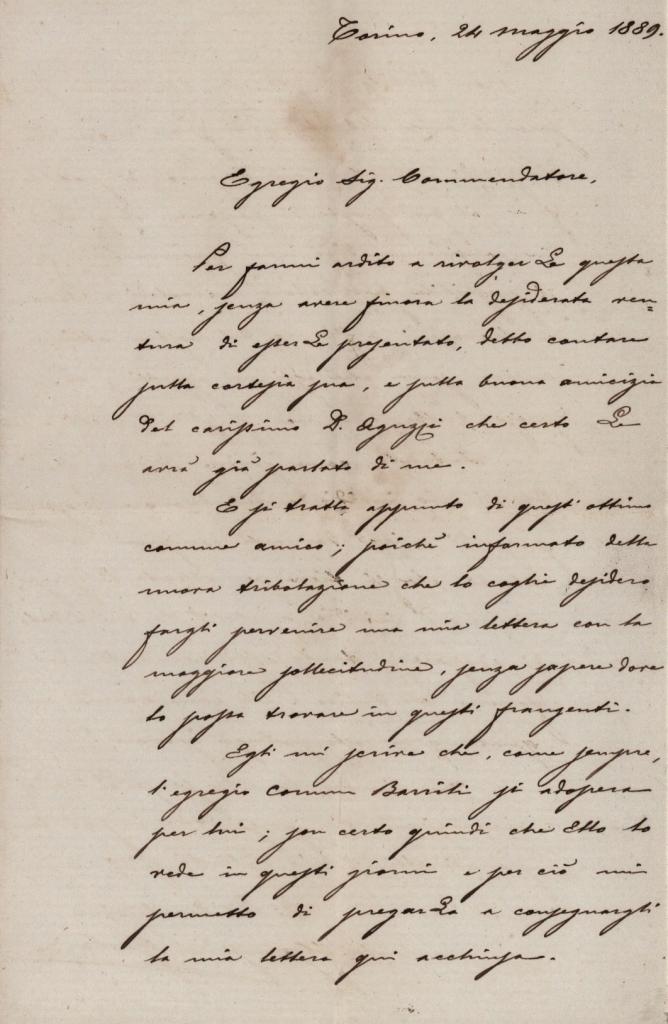 Torino, 24 maggio 1889.
Egregio Sig. Commendatore,
Per farmi ardito a rivolgerLe questa
mia, senza avere finora la desiderata ven=
tura di esserLe presentato, debbo contare
sulla cortesia sua, e sulla buona amicizia
del carissimo D. Aguzzi che certo Le
avrà già parlato di me.
E si tratta appunto di quest'ottimo
comune amico; poichè informato della
nuova tribolazione che lo coglie desidero
fargli pervenire una mia lettera con la
maggiore sollecitudine, senza sapere dove
lo possa trovare in questi frangenti.
Egli mi scrive che, come sempre,
l'egregio Comm Barrili si adopera
per lui; son certo quindi che Ella lo
vede in questi giorni e per ciò mi
permetto di pregarLa a consegnargli
la mia lettera qui acchiusa.